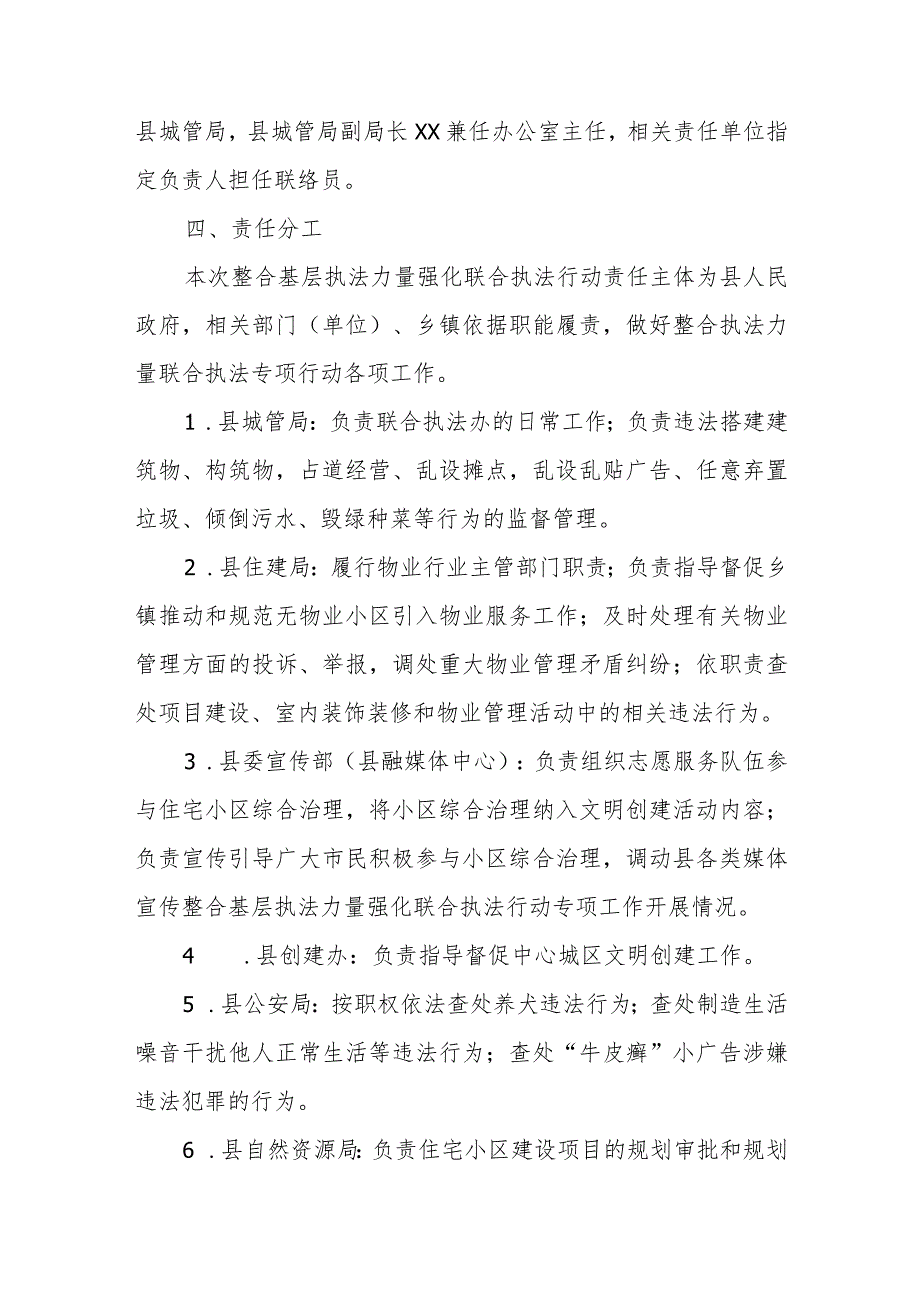 县城管局，县城管局副局长 XX 兼任办公室主任，相关责任单位指
定负责人担任联络员。
四、责任分工
本次整合基层执法力量强化联合执法行动责任主体为县人民
政府，相关部门（单位）、乡镇依据职能履责，做好整合执法力
量联合执法专项行动各项工作。
1 .县城管局：负责联合执法办的日常工作；负责违法搭建建
筑物、构筑物，占道经营、乱设摊点，乱设乱贴广告、任意弃置
垃圾、倾倒污水、毁绿种菜等行为的监督管理。
2 .县住建局：履行物业行业主管部门职责；负责指导督促乡
镇推动和规范无物业小区引入物业服务工作；及时处理有关物业
管理方面的投诉、举报，调处重大物业管理矛盾纠纷；依职责查
处项目建设、室内装饰装修和物业管理活动中的相关违法行为。
3 .县委宣传部（县融媒体中心）：负责组织志愿服务队伍参
与住宅小区综合治理，将小区综合治理纳入文明创建活动内容；
负责宣传引导广大市民积极参与小区综合治理，调动县各类媒体
宣传整合基层执法力量强化联合执法行动专项工作开展情况。
4 .县创建办：负责指导督促中心城区文明创建工作。
5 .县公安局：按职权依法查处养犬违法行为；查处制造生活
噪音干扰他人正常生活等违法行为；查处“牛皮癣”小广告涉嫌
违法犯罪的行为。
6 .县自然资源局：负责住宅小区建设项目的规划审批和规划